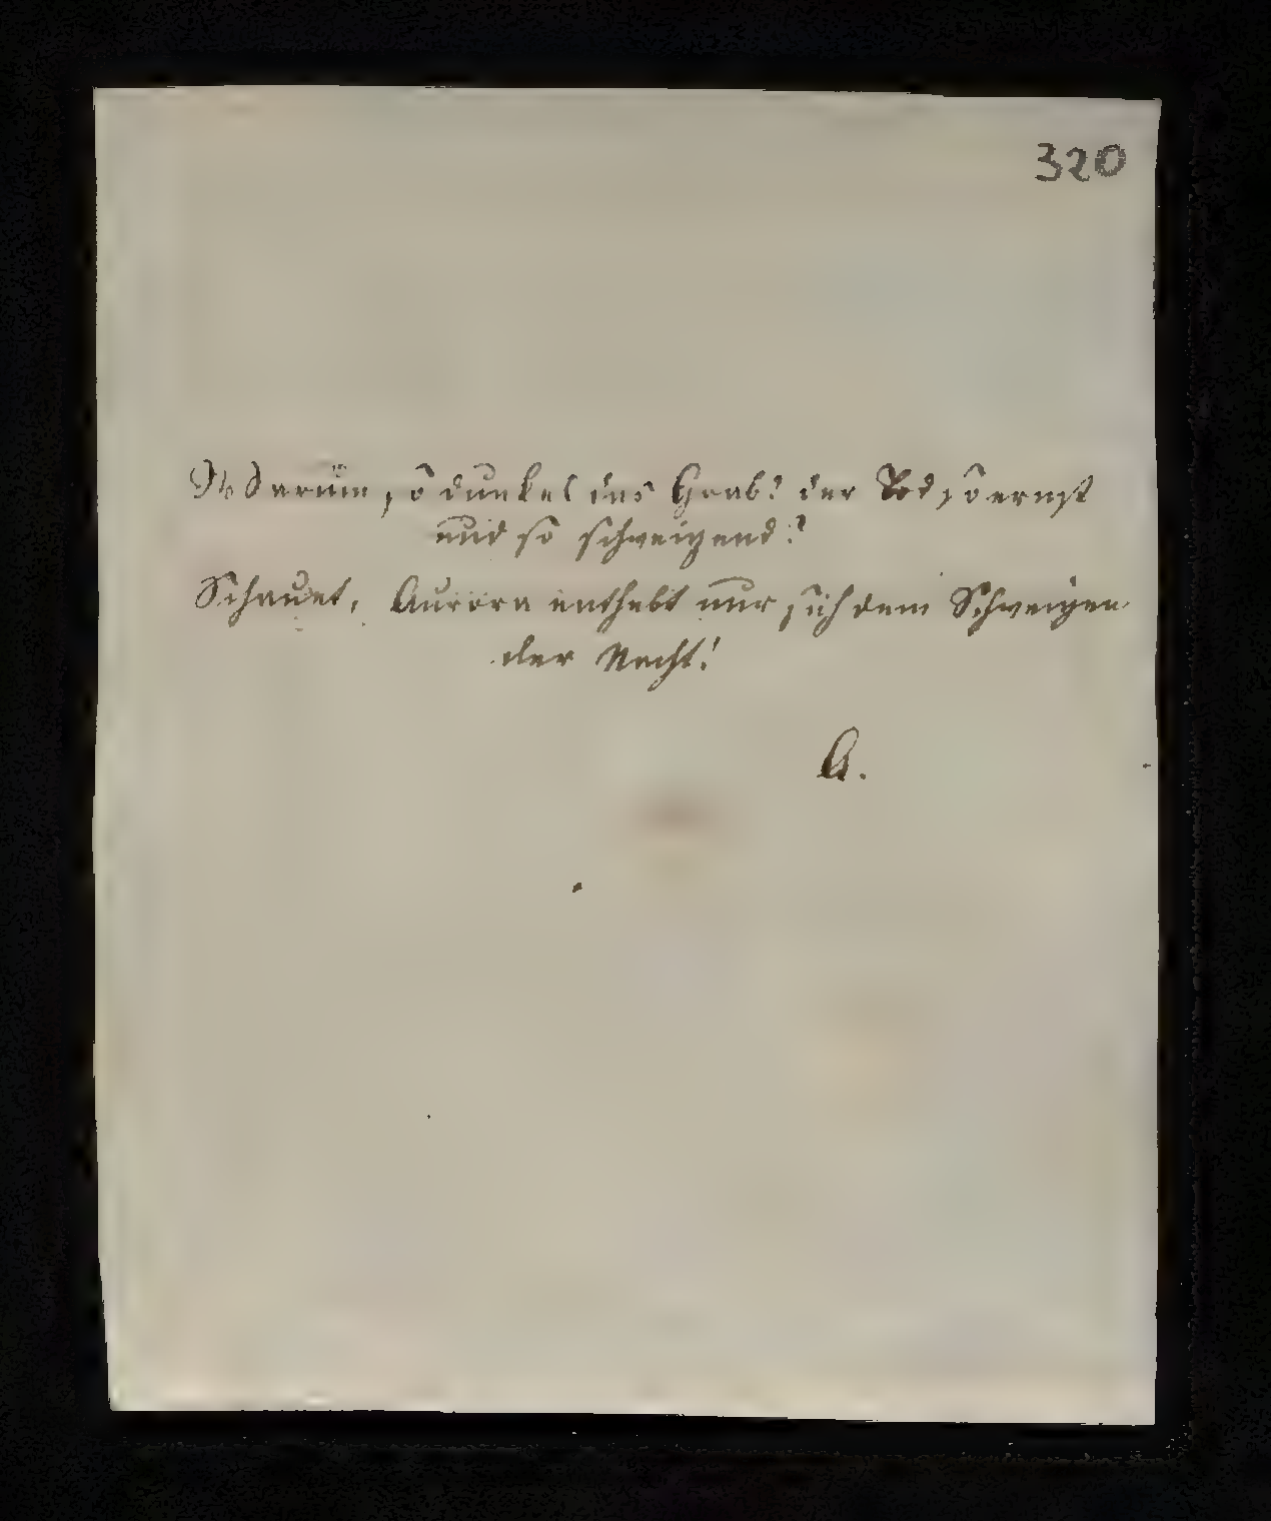 320
Warum so dunkel das Grab? der Tod so ernst
und so schweigend?
Schauet, Aurora enthebt nur sich dem Schweigen
der Nacht!
A.